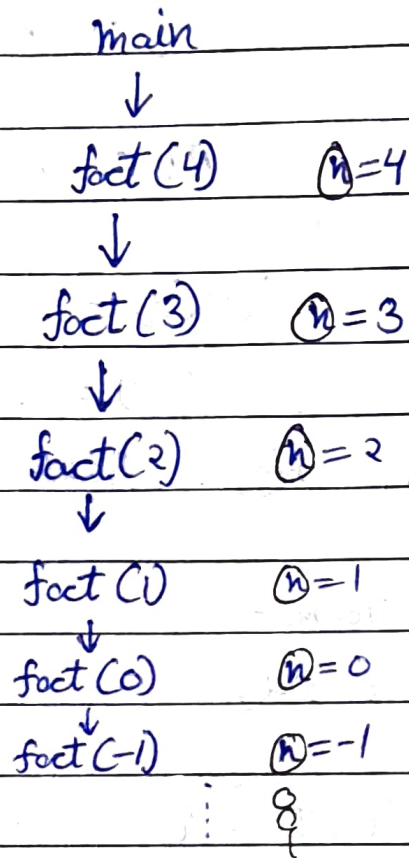 main
↓
fact(4) n=4
↓
fact(3) n=3
↓
fact(2) n=2
↓
fact(1) n=1
↓
fact(0) n=0
↓
fact(-1) n=-1